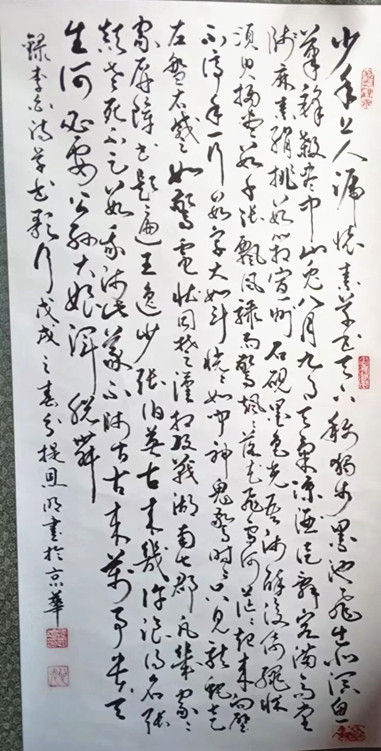 少年上人號懷素草書天下稱獨步墨池飛出北溟魚
筆鋒殺盡中山兔八月九月天氣涼酒徒辭客滿高堂
牋麻素絹排數箱宣州石硯墨色光吾師醉後倚繩牀
須臾掃盡數千張飄風驟雨驚颯々落花飛雪何茫々起來向壁
不停手一行數字大如斗恍々如聞神鬼驚時々只見龍蛇走
左盤右蹙如驚電狀同楚漢相攻戰湖南七郡凡幾家
家屏障書題遍王逸少張伯英古來幾許浪得名張
顛老死不足數我師此義不師古古來萬事貴天
生何必要公孫大娘渾脫舞
錄李白詩草書歌行戊戌之春書於京華